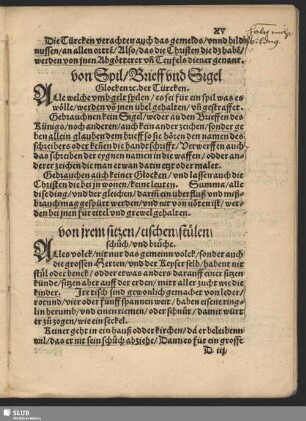 XV
Die Türcken verachten auch das gemelds/ vnnd bild
nussen/ an allen ortē/ Also/ das die Christen die dz habē/
werden von jnen Abgötterer vñ Teufels diener genant.
von Spil/ Brieff vnd Sigel
Glocken ꝛc. der Türcken.
Alle welche vmb gelt spilen/ es sei für ein spil was es
wölle/ werden võ jnen übel gehalten/ vñ gestraffet.
Gebrauchen kein Sigel/ weder an den Brieffen des
Künigs/ noch anderen/ auch kein ander zeichen/ sonder ge
ben allein glauben dem brieff so sie hören den namen des
schreibers oder kēnen die handtschrifft/ Verwerffen auch
das schreiben der eygnen namen in die waffen/ odder an
derer zeichen die man etwan darin etzt oder malet.
Gebrauchen auch keiner Glocken/ vnd lassen auch die
Christen die bei jn wonen/ keine leuten. Summa/ alle
dise ding/ vnd der gleichen/ darin ein überfluß vnd miß
brauch mag gespürt werden/ vnd nit von nöten ist/ wer
den bei jnen für eitel vnd grewel gehalten.
von jrem sitzen/ tischen/ stülen/
schüch/ vnd brüche.
Alles volck/ nit nur das gemein volck/ sonder auch
die grossen Herren/ vnd der Keyser selb/ haben nit
stül oder benck/ odder etwas anders darauff einer sitzen
künde/ sitzen aber auff der erden/ mit aller zucht wie die
kinder. Ire tisch sind gewonlich gemachet von leder/
rotund/ vier oder fünff spannen weit/ haben eisene ring
lin herumb/ vnd einen riemen/ oder schnůr/ damit würt
er zů zogen/ wie ein seckel.
Keiner geht in ein hauß odder kirchen/ da er beleiben
wil/ das er nit sein schüch abziehe/ Dann es für ein grosse
D iij
SLUB